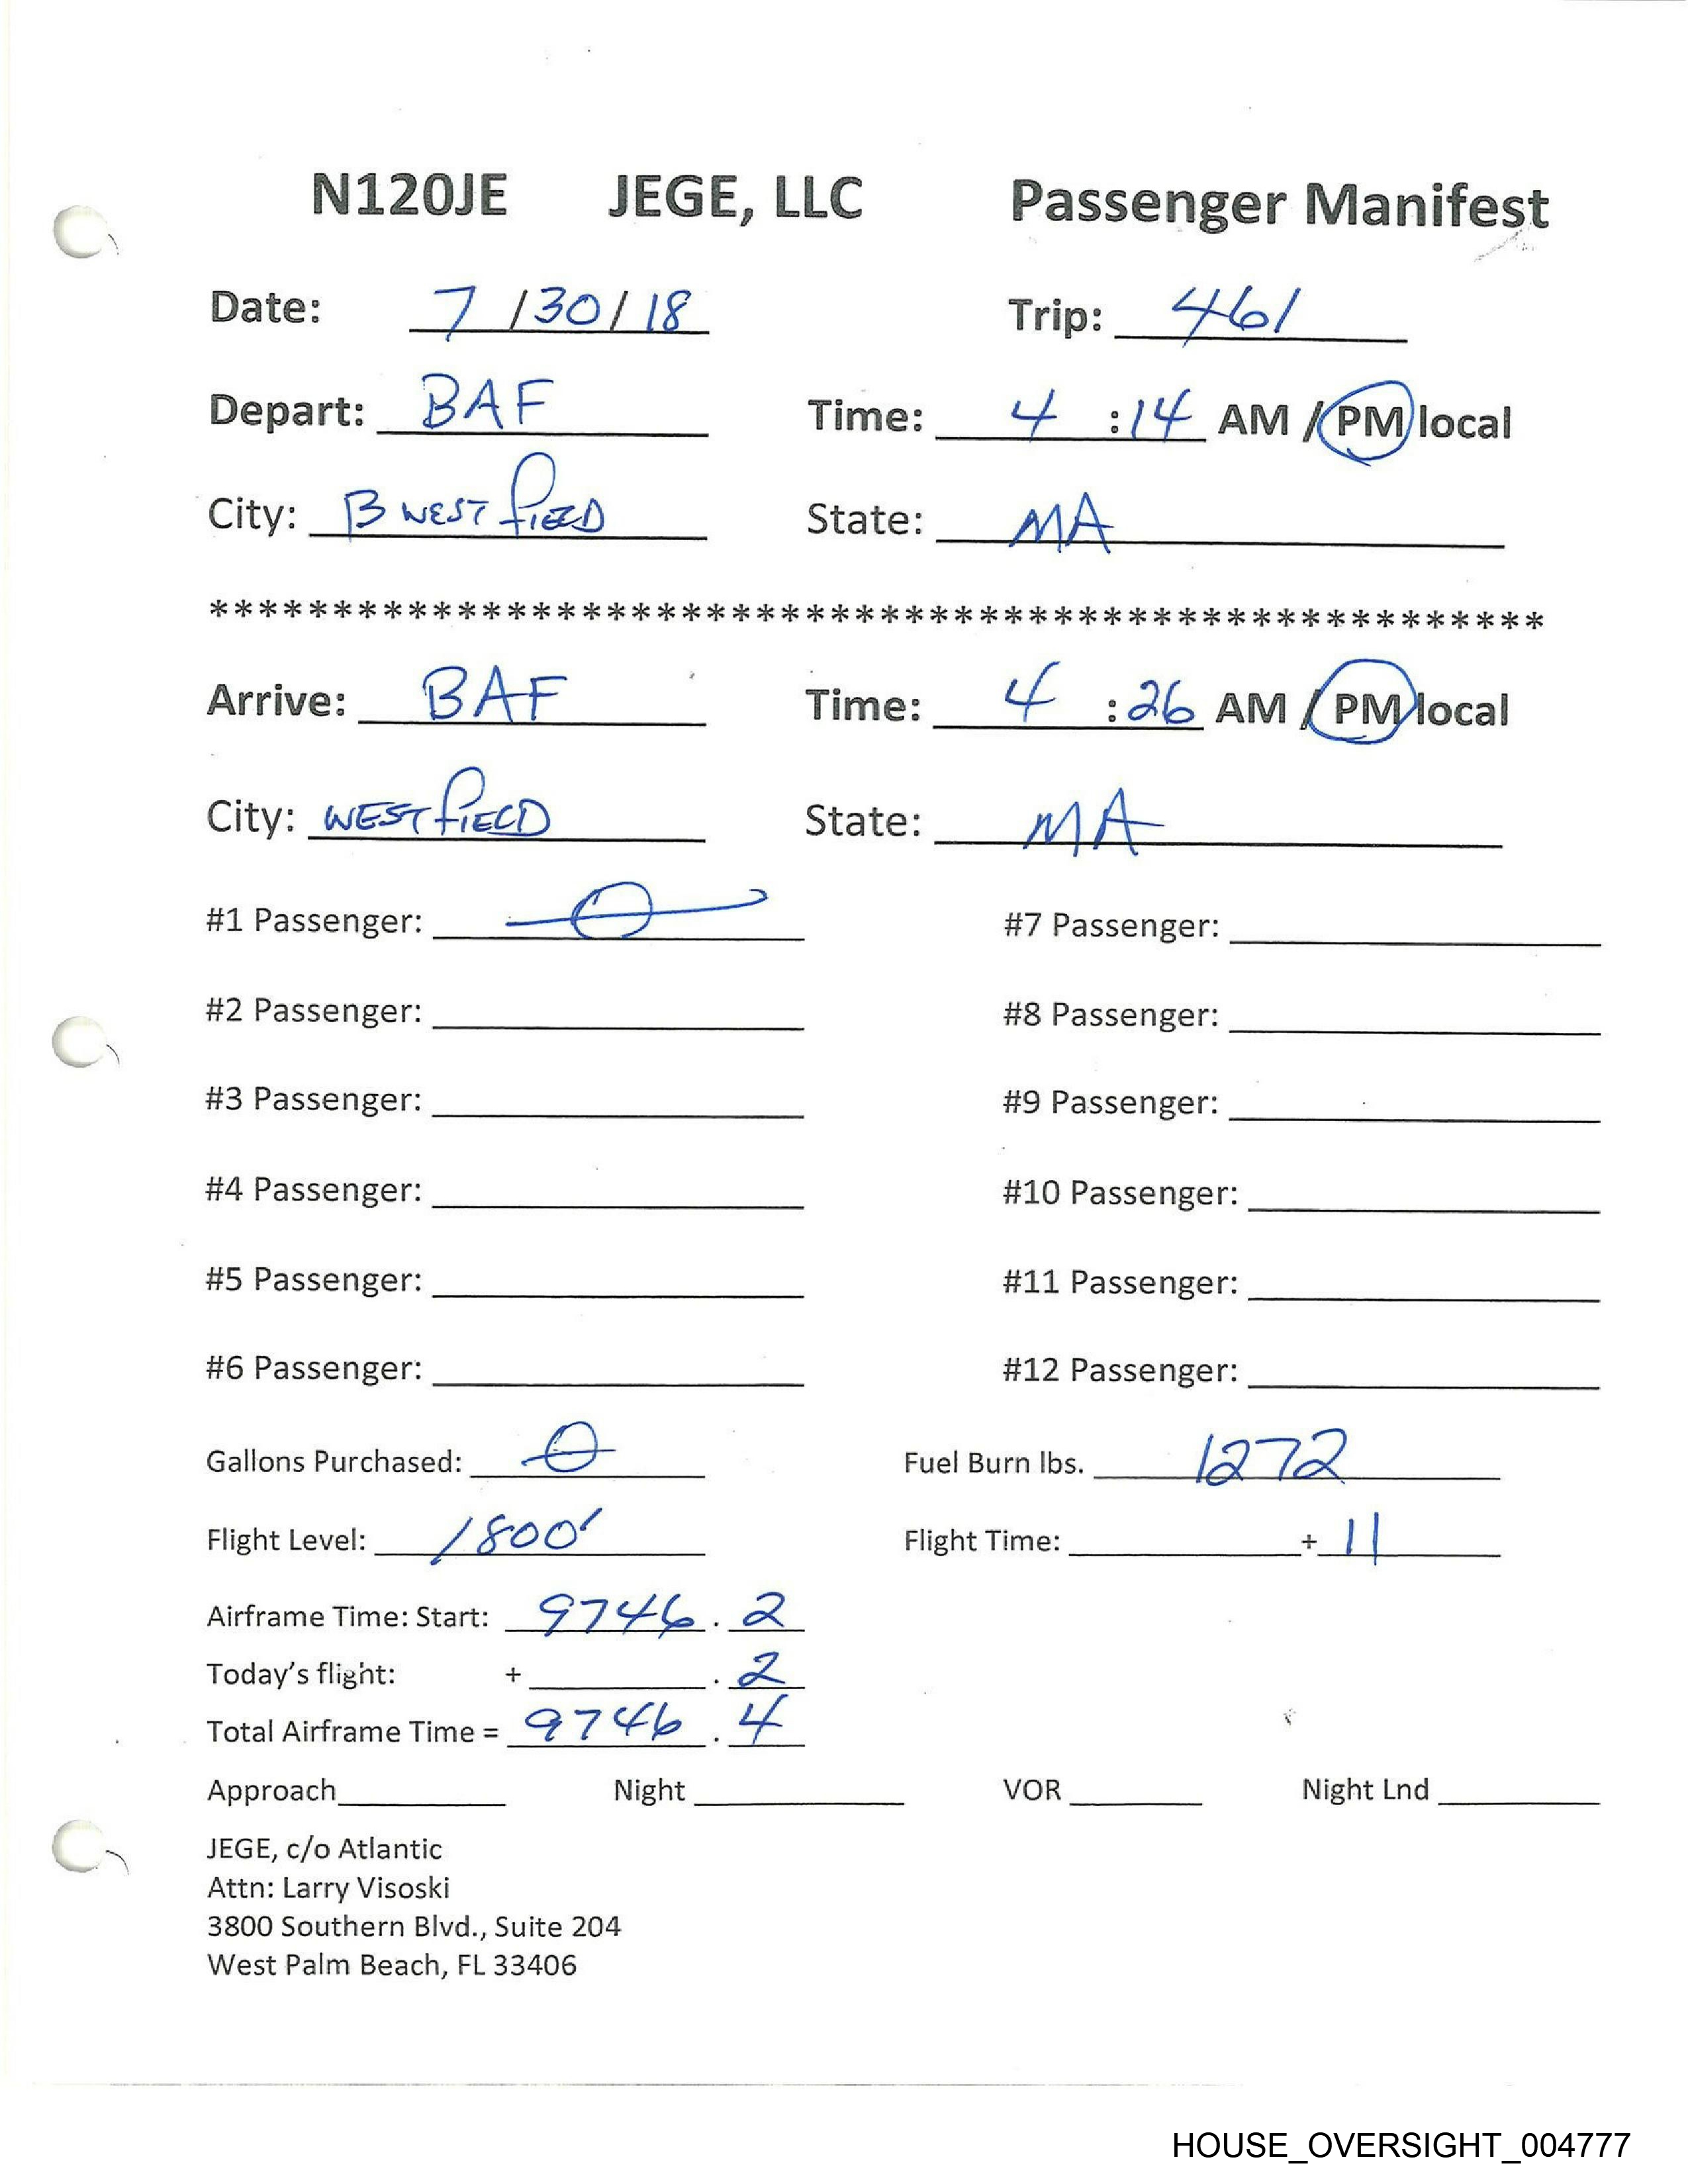 N120JE JEGE, LLC Passenger Manifest
Date: 7 /30/ 18 Trip: 461
Depart: BAF Time: 4 :14 AM / PM local
City: B WESTfIELD State: MA
******************************************************
Arrive: BAF Time: 4 :26 AM / PM local
City: WESTfIELD State: MA
#1 Passenger: 0 #7 Passenger:
#2 Passenger: #8 Passenger:
#3 Passenger: #9 Passenger:
#4 Passenger: #10 Passenger:
#5 Passenger: #11 Passenger:
#6 Passenger: #12 Passenger:
Gallons Purchased: 0 Fuel Burn lbs. 1272
Flight Level: 1800' Flight Time: + 11
Airframe Time: Start: 9746 . 2
Today's flight: + . 2
Total Airframe Time = 9746 . 4
Approach Night VOR Night Lnd
JEGE, c/o Atlantic
Attn: Larry Visoski
3800 Southern Blvd., Suite 204
West Palm Beach, FL 33406
HOUSE_OVERSIGHT_004777